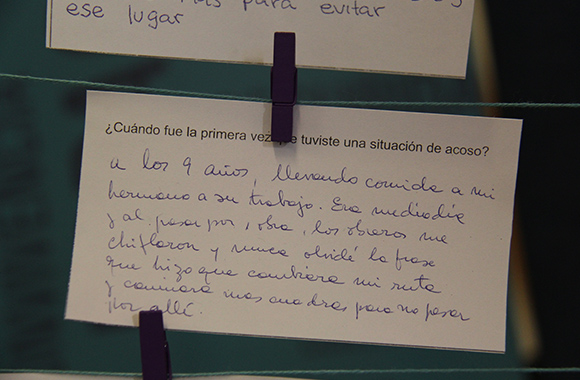 para evitar
ese lugar
¿Cuándo fue la primera vez que tuviste una situación de acoso?
a los 9 años, llevando comida a mi
hermano a su trabajo. Era mediodía
y al pasar por 1 obra, los obreros me
chiflaron y nunca olvidé la frase
que hizo que cambiara mi ruta
y caminara mas cuadras para no pasar
por allí.